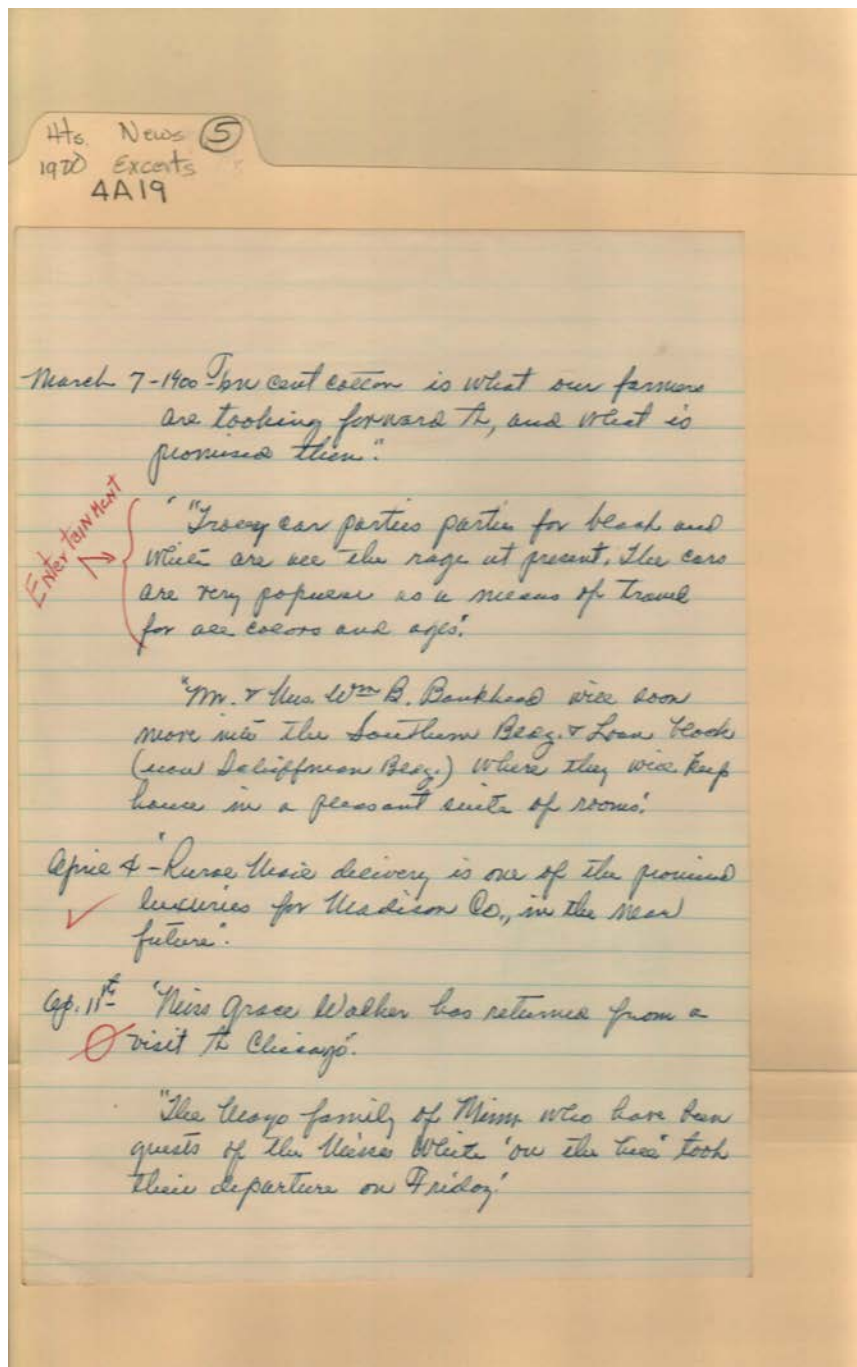 Hts. News 5
1900 Excerts
4A19
March 7-1900 - "Ten cent cotton is what our farmers
are looking forward to, and what is
promised them."
Entertainment
"Trolley car parties parties for black and
white are all the rage at present. The cars
are very popular as a means of travel
for all colors and ages".
"Mr. & Mrs. Wm B. Bankhead will soon
move into the Southern Bldg. & Loan block
(now Schiffman Bldg.) where they will keep
house in a pleasant suite of rooms".
April 4 - "Rural Mail delivery is one of the promised
luxuries for Madison Co., in the near
future".
Ap. 11th "Miss Grace Walker has returned from a
visit to Chicago".
"The Mayo family of Minn who have been
guests of the Misses White 'on the hill' took
their departure on Friday"